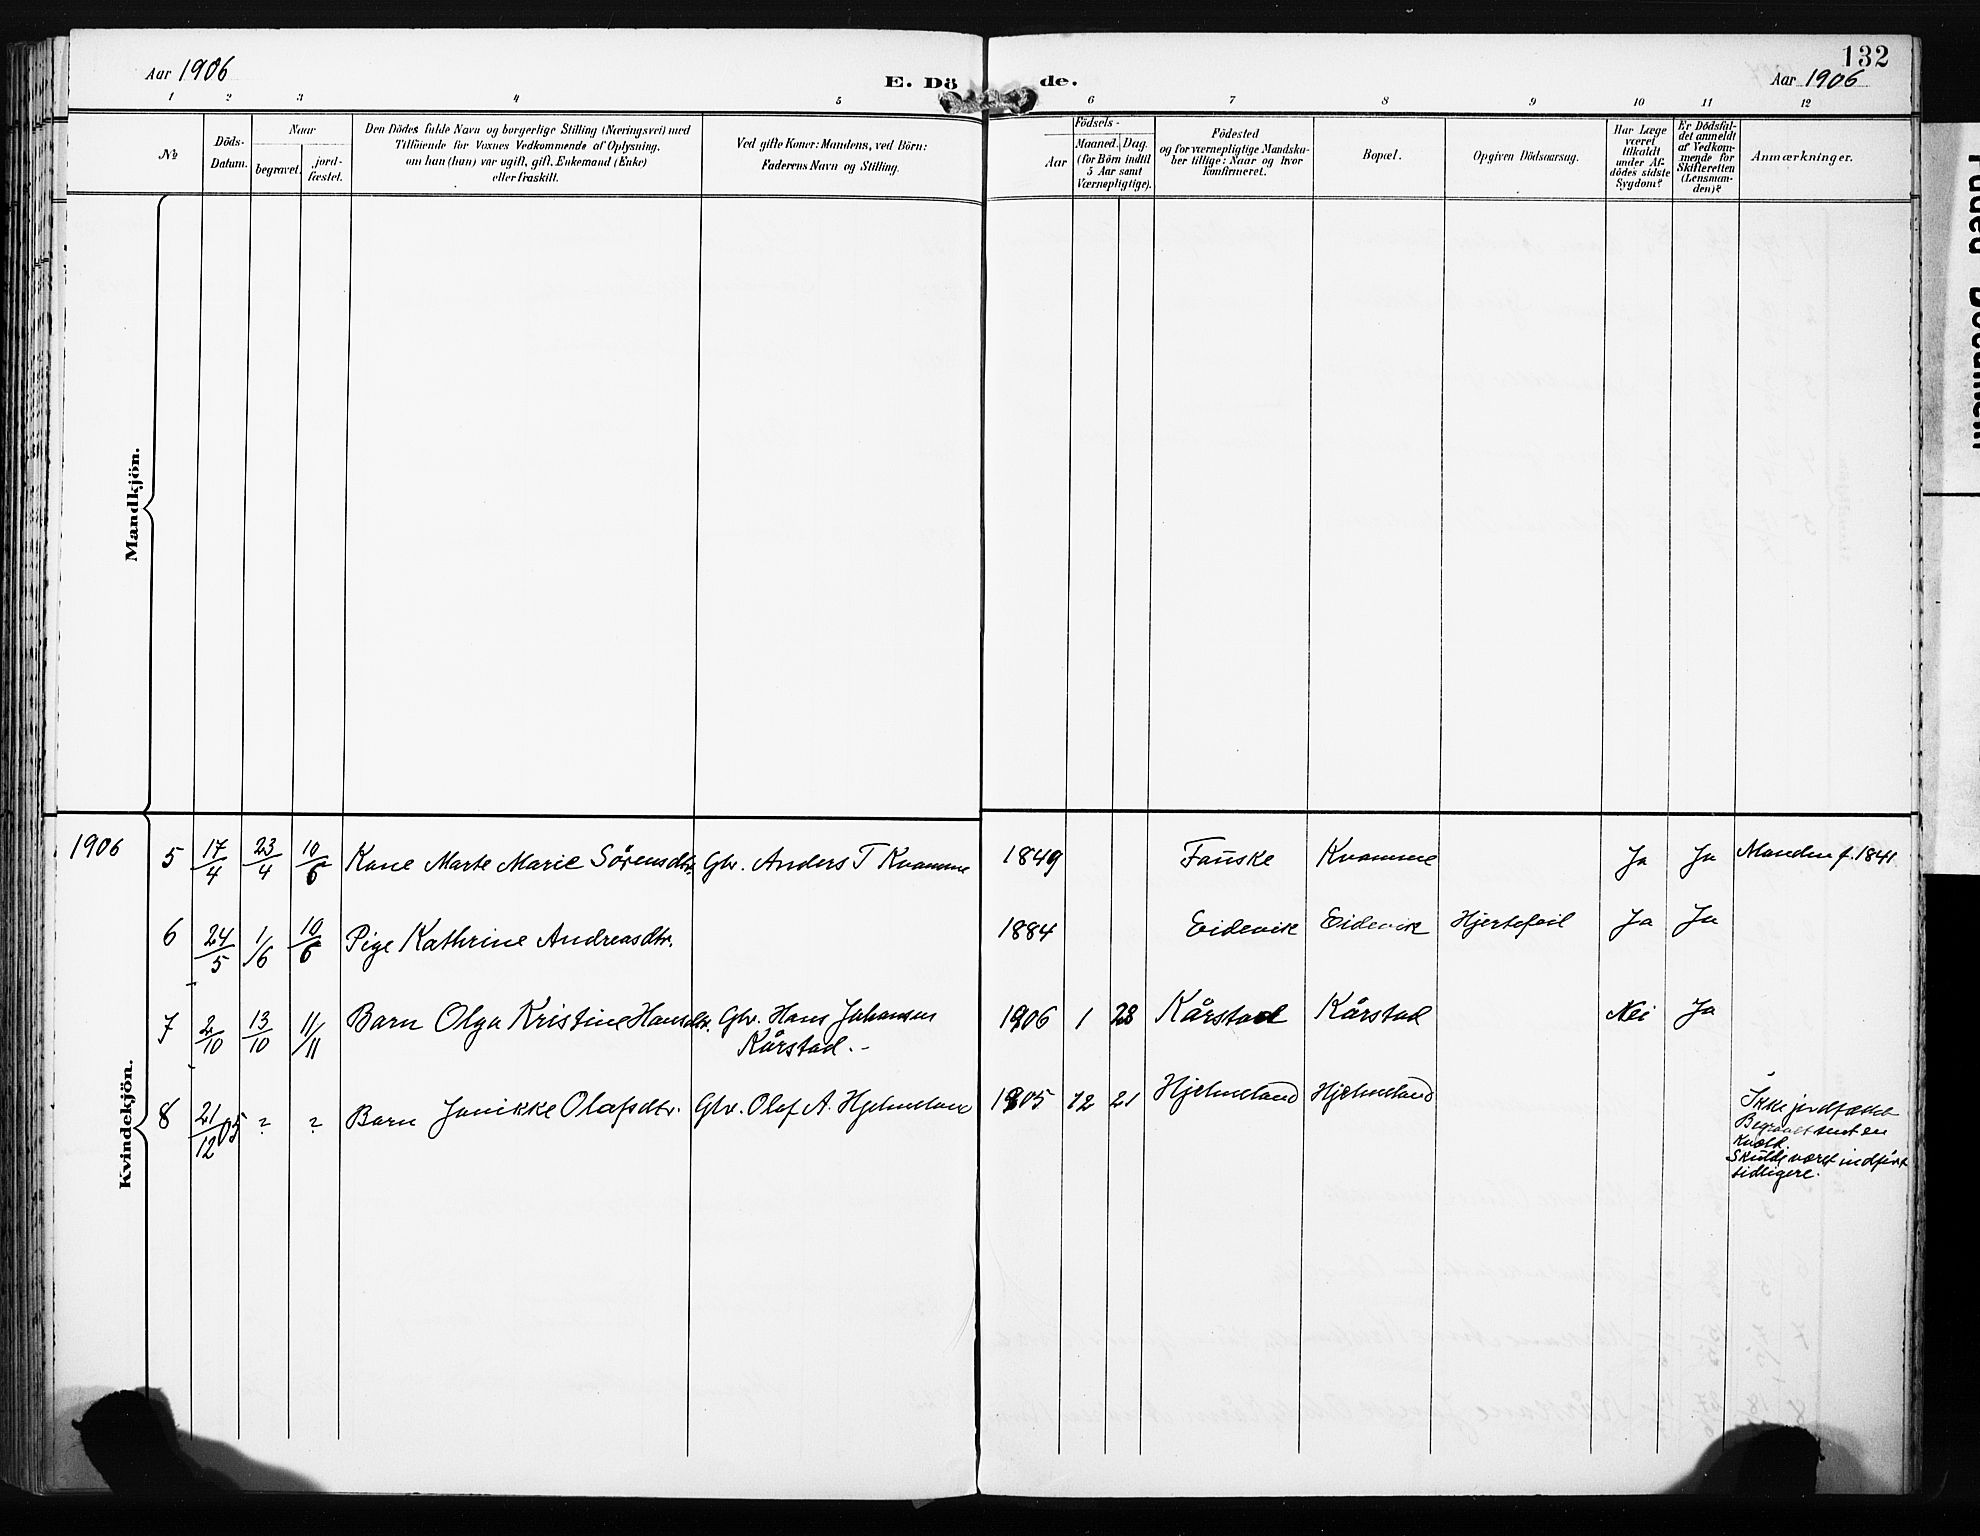 132
Aar 1906
E. Döde.
Aar 1906
1 2 3 4 5 6 7 8 9 10 11 12
№
Döds-Datum.
Naar
begravet.
jord-fæstet.
Den Dödes fulde Navn og borgerlige Stilling (Næringsvei) med
Tilföiende for Voxnes Vedkommende af Oplysning,
om han (hun) var ugift, gift, Enkemand (Enke)
eller fraskilt.
Ved gifte Koner: Mandens, ved Börn:
Faderens Navn og Stilling.
Födsels-
Aar
Maaned.
Dag.
(for Börn indtil
5 Aar samt
Værnepligtige).
Födested
og for værnepligtige Mandska-
ber tillige: Naar og hvor
konfirmeret.
Bopæl.
Opgiven Dödsaarsag.
Har Læge
været
tilkaldt
under Af-
dödes sidste
Sygdom?
Er Dödsfal-
det anmeldt
af Vedkom-
mende for
Skifteretten
(Lensman-
den)?
Anmærkninger.
Mandkjön.
Kvindekjön.
1906 5 17/4 23/4 10/6 Kone Marte Marie Sörensdtr. Gbr. Anders T Kvamme 1849 Fauske Kvamme Ja Ja Manden f. 1841
6 24/5 1/6 10/6 Pige Kathrine Andreasdtr. 1884 Eidevik Eidevik Hjertefeil Ja Ja
7 2/10 13/10 11/11 Barn Olga Kristine Hansdtr. Gbr. Hans Johansen 1906 1 28 Kårstad Kårstad Nei Ja
Kårstad.-
8 21/12 05 ? ? Barn Janikke Olafsdtr. Gbr. Olaf A. Hjelmeland 1905 12 21 Hjelmeland Hjelmeland
Ikke jordfæstet
Begravet sent en
Kvæld.
Skulde været indført
tidligere.